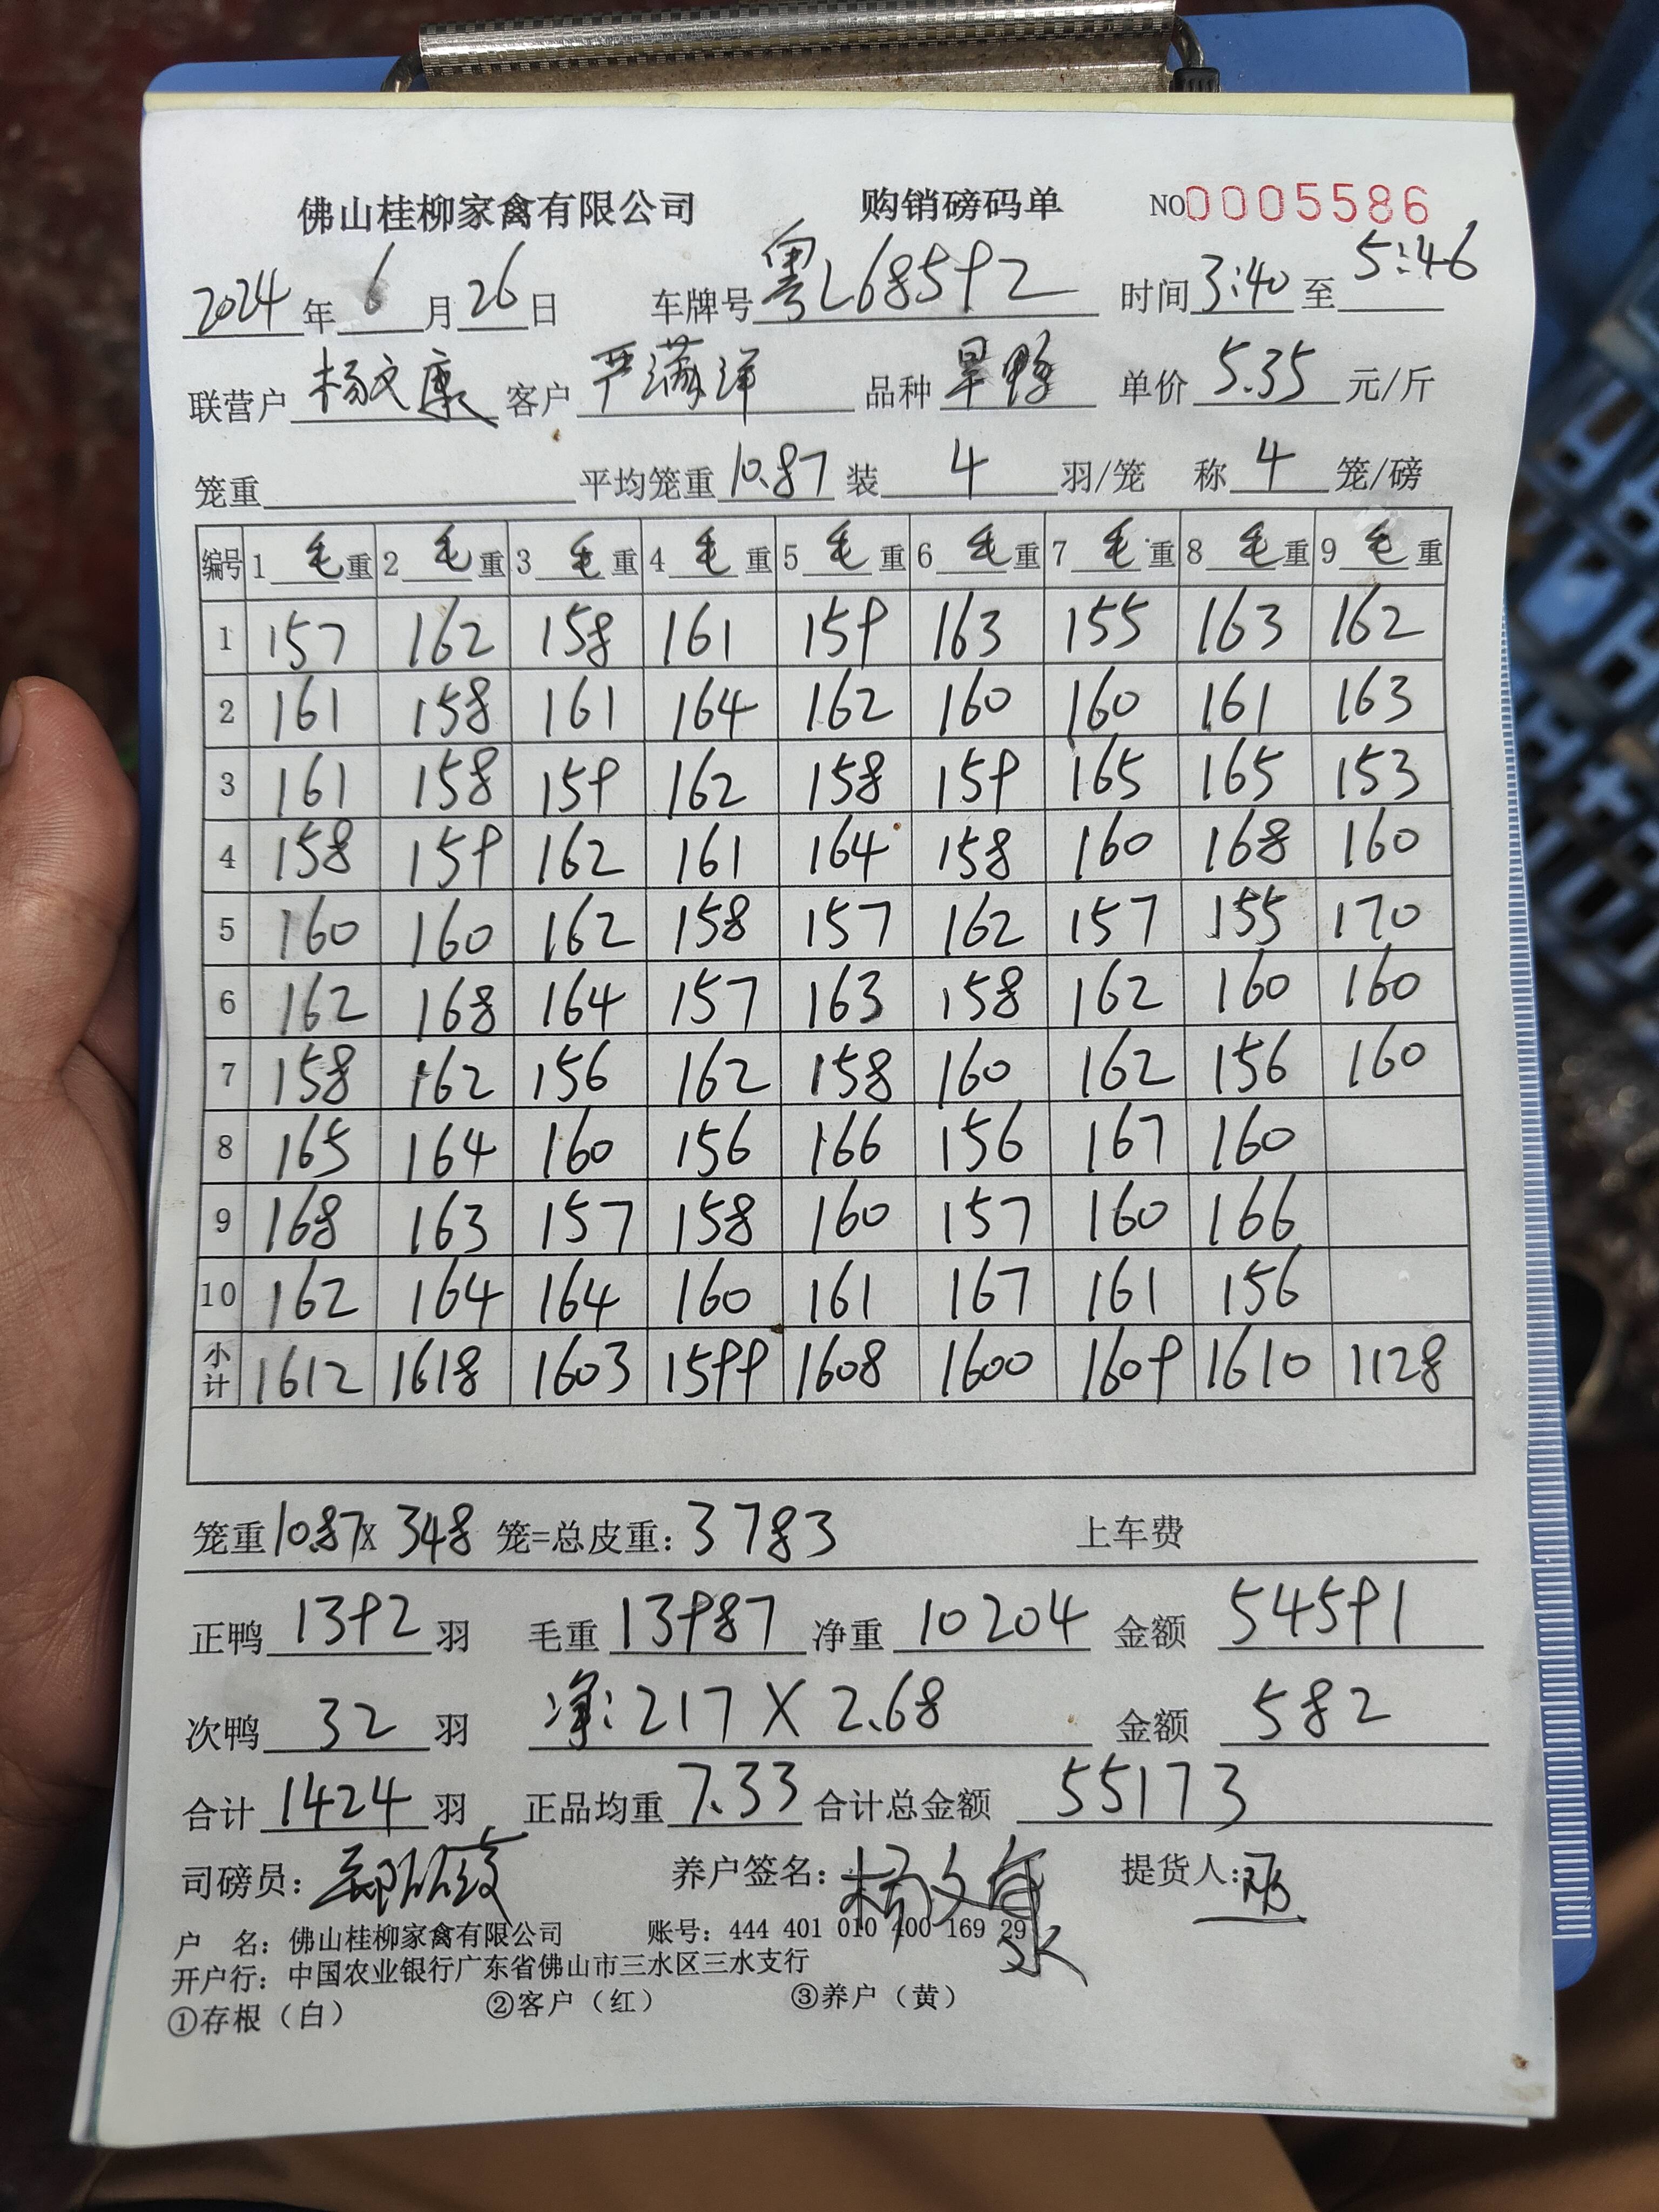 佛山桂柳家禽有限公司 购销磅码单 NO0005586
2024年6月26日 车牌号粤L68592 时间3:40至5:46
联营户杨文康 客户严满洋 品种旱鸭 单价5.35元/斤
笼重 平均笼重10.87装4羽/笼 称4笼/磅
编号 1毛重 2毛重 3毛重 4毛重 5毛重 6毛重 7毛重 8毛重 9毛重
1 157 162 158 161 159 163 155 163 162
2 161 158 161 164 162 160 160 161 163
3 161 158 159 162 158 159 165 165 153
4 158 159 162 161 164 158 160 168 160
5 160 160 162 158 157 162 157 155 170
6 162 168 164 157 163 158 162 160 160
7 158 162 156 162 158 160 162 156 160
8 165 164 160 156 166 156 167 160
9 168 163 157 158 160 157 160 166
10 162 164 164 160 161 167 161 156
小计 1612 1618 1603 1599 1608 1600 1609 1610 1128
笼重10.87X348笼=总皮重：3783 上车费
正鸭1392羽 毛重13987净重10204金额54591
次鸭32羽 净:217X2.68 金额582
合计1424羽 正品均重7.33合计总金额55173
司磅员： 养户签名：杨文 提货人：
户 名：佛山桂柳家禽有限公司 账号：444 401 010 400 169 29
开户行：中国农业银行广东省佛山市三水区三水支行
①存根（白） ②客户（红） ③养户（黄）